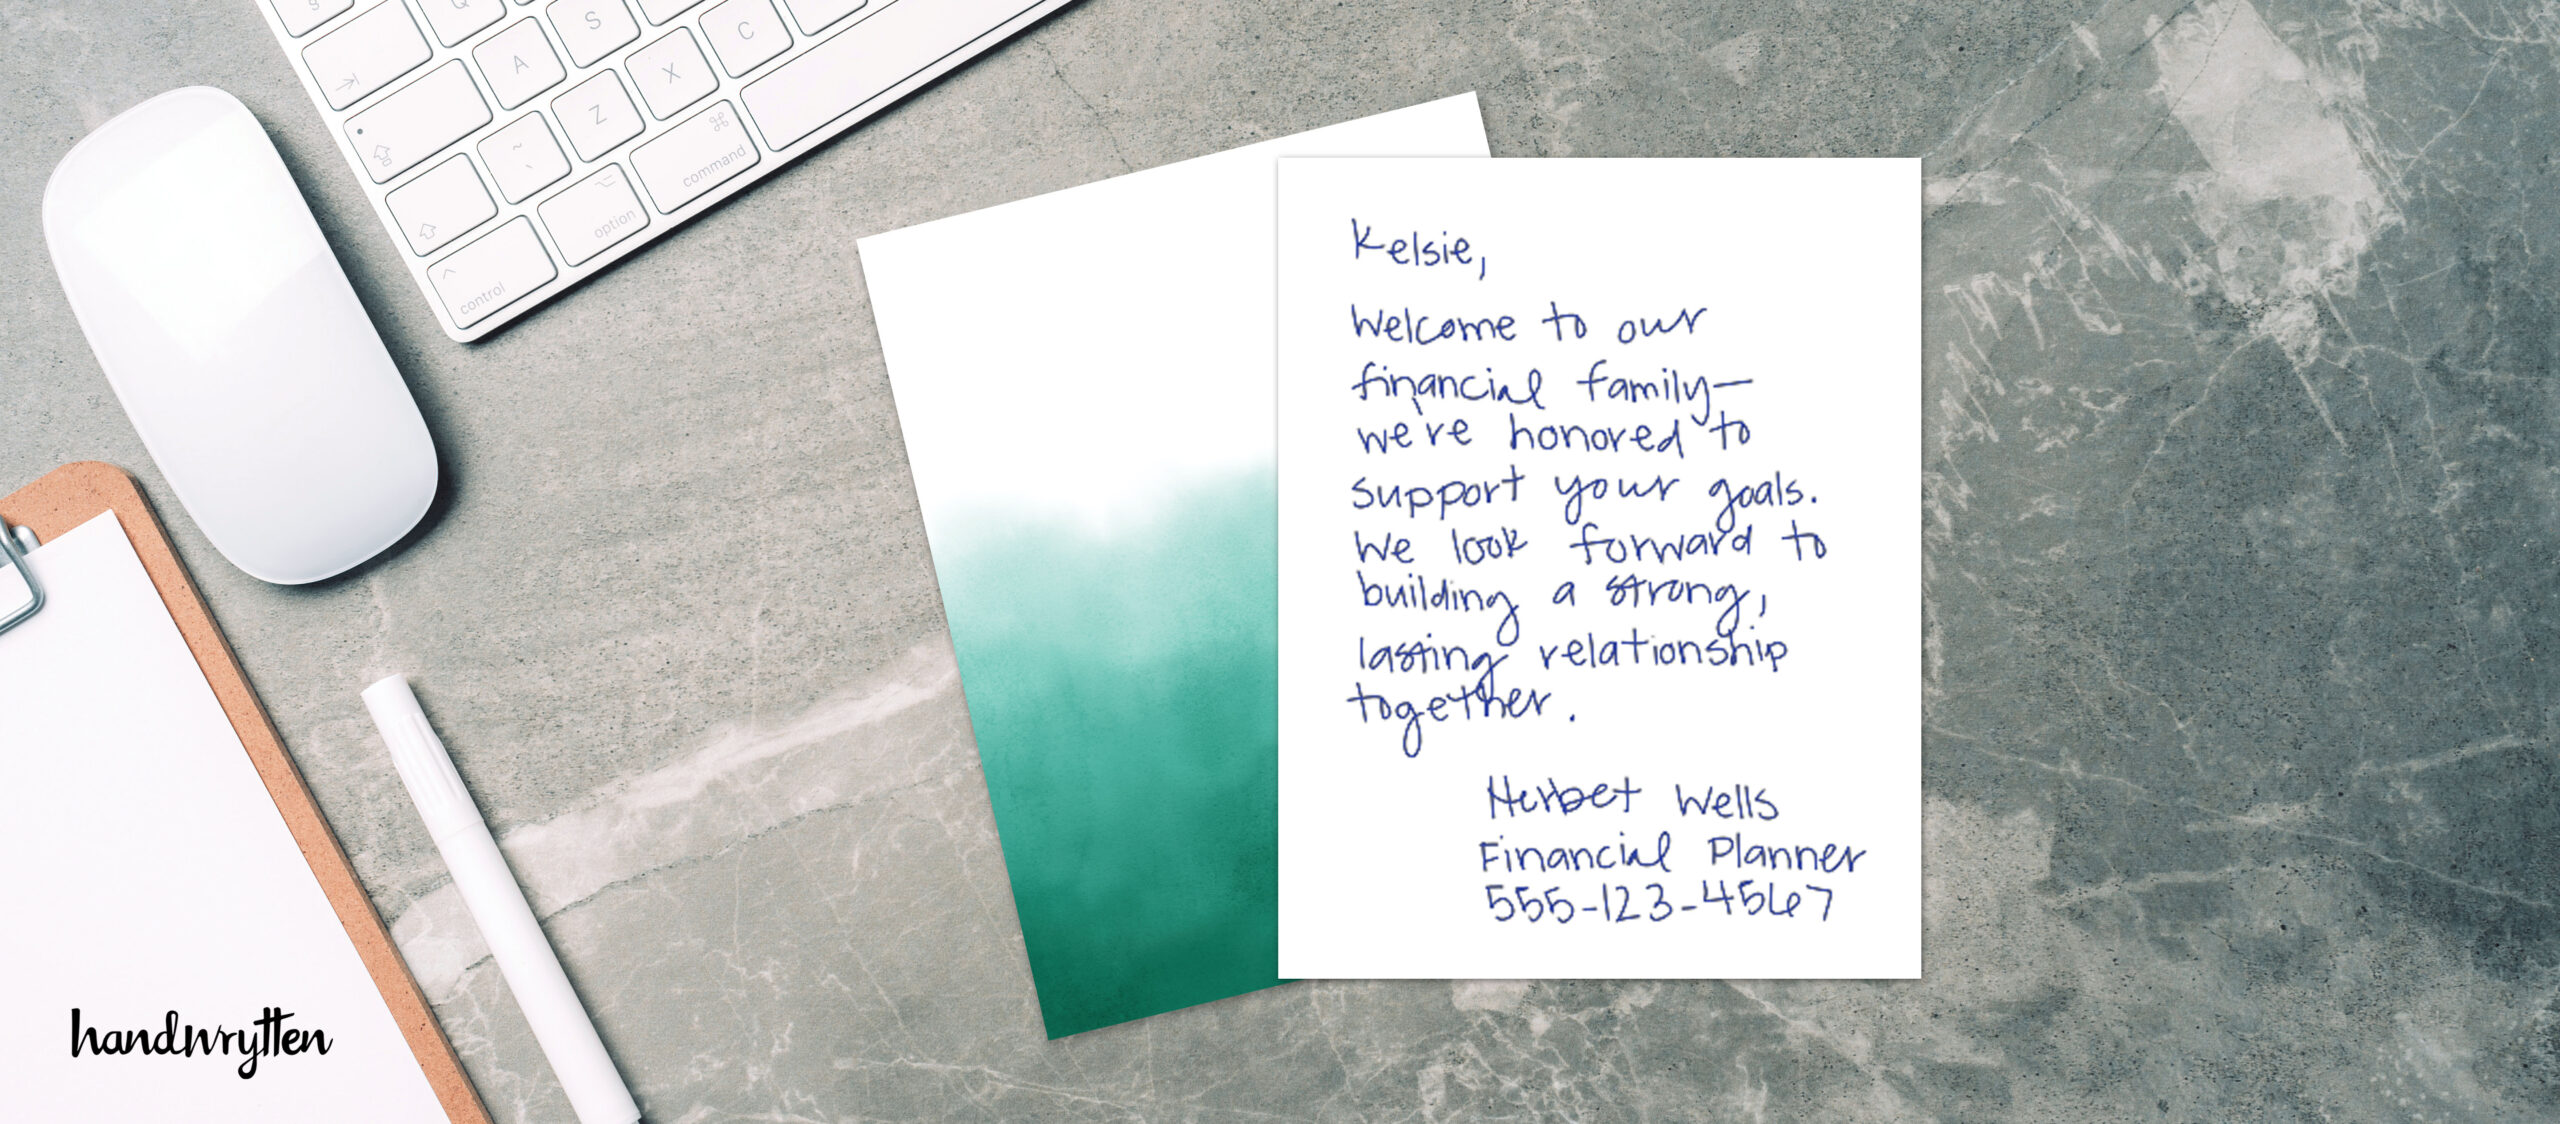 Q
A
S
Z
X
C
~
`
⌘
command
⌥
option
^
control
Kelsie,
Welcome to our
financial family—
we're honored to
support your goals.
We look forward to
building a strong,
lasting relationship
together.
Herbet Wells
Financial Planner
555-123-4567
handwrytten